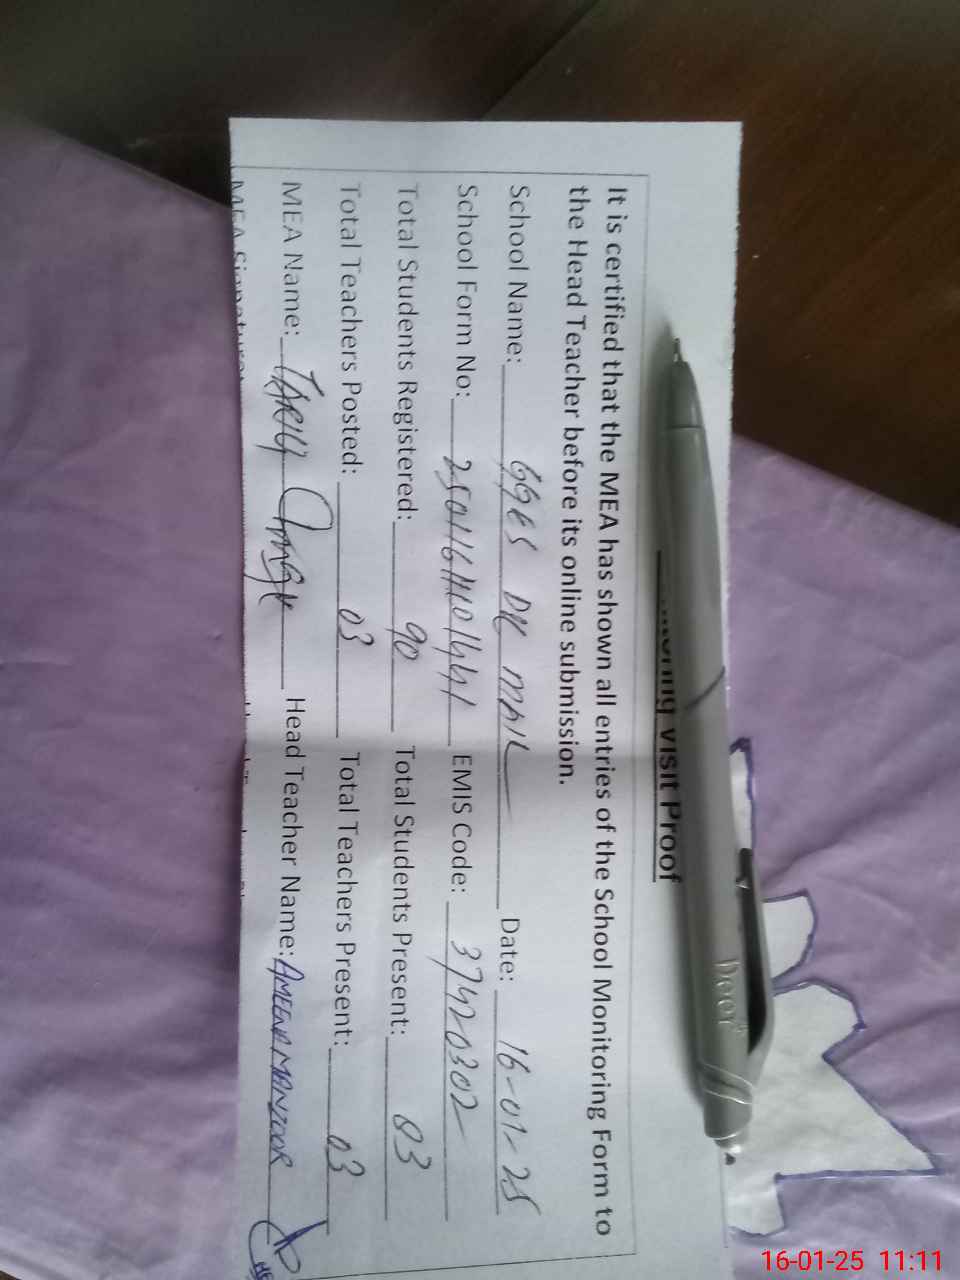 visit Proof
It is certified that the MEA has shown all entries of the School Monitoring Form to
the Head Teacher before its online submission.
School Name: GGES DK Date: 16-01-25
School Form No: EMIS Code: 37420302
Total Students Registered: 90 Total Students Present: 83
Total Teachers Posted: 03 Total Teachers Present: 03
MEA Name: TARIQ Head Teacher Name: AMEENA MANZOOR
MEA Signature:
Deer
16-01-25 11:11